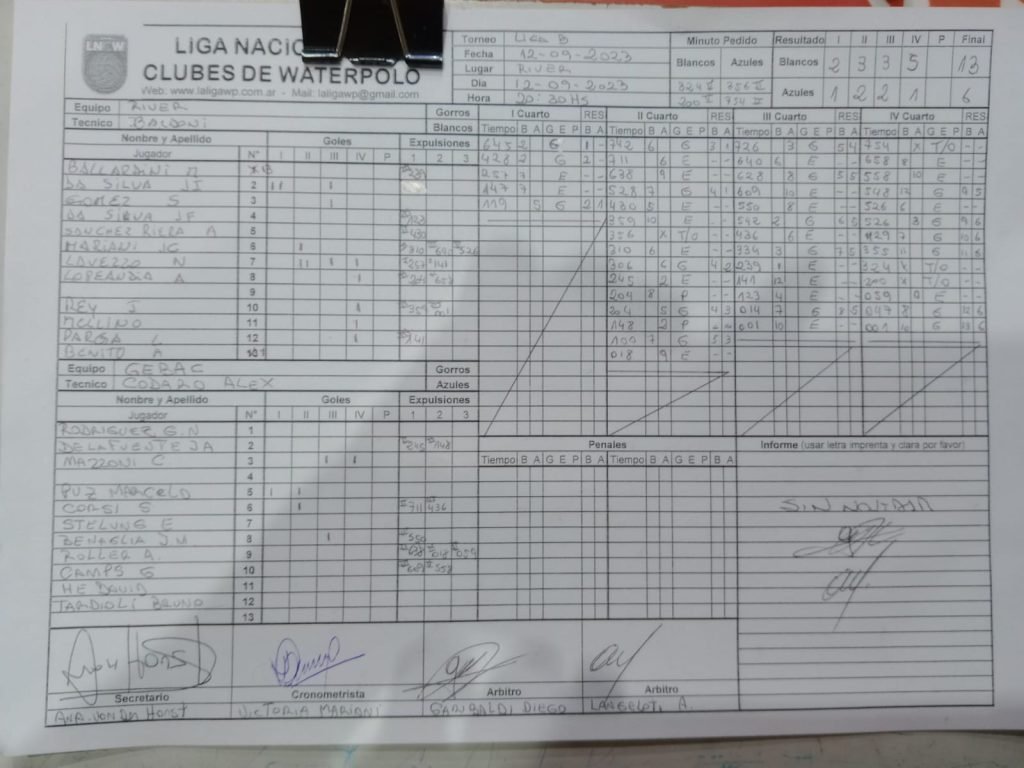 LNCW
LIGA NACIO
CLUBES DE WATERPOLO
Web: www.laligawp.com.ar - Mail: laligawp@gmail.com
Torneo LIGA B
Fecha 12-09-2023
Lugar RIVER
Dia 12-09-2023
Hora 20:30 HS
Minuto Pedido
Blancos Azules
324 IV 356 II
200 IV 754 IV
Resultado I II III IV P Final
Blancos 2 3 3 5 13
Azules 1 2 2 1 6
Equipo RIVER Gorros
Tecnico BALDONI Blancos
Nombre y Apellido Goles Expulsiones
Jugador N° I II III IV P 1 2 3
BALLARDINI M
DA SILVA JI 2
GOMEZ S 3
DA SILVA JF 4
SANCHEZ RIERA A 5 430
MARIANI JC 6 310 640 526
LAVEZZO N 7 257 147
LOPEANDIA A 8
9
REY J 10 359
MELLINO 11
PARGA L 12 141
BENITO A
Equipo GERAC Gorros
Tecnico CODARO ALEX Azules
Nombre y Apellido Goles Expulsiones
Jugador N° I II III IV P 1 2 3
RODRIGUEZ G.N 1
DE LA FUENTE JA 2 245 148
MAZZONI C. 3
4
PUZ MARCELO 5
CORSI S 6 711 436
STELUNG E 7
BENAGLIA J.M. 8 550
ROLLER A. 9 638 018 059
CAMPS G 10 558
HE DAVID 11
TARDIOLI BRUNO 12
13
I Cuarto RES
Tiempo B A G E P B A
645 2 G 1 -
428 2 G 2 -
257 7 E - -
147 7 E - -
119 5 G 2 1
II Cuarto RES
Tiempo B A G E P B A
742 6 G 3 1
711 6 E - -
638 9 E - -
528 7 G 4 1
430 5 E - -
359 10 E - -
356 X T/O - -
310 6 E - -
306 6 G 4 2
245 2 E - -
204 8 P - -
204 5 G 4 3
148 2 P - -
109 7 G 5 3
018 9 E - -
III Cuarto RES
Tiempo B A G E P B A
726 3 G 5 4
640 6 E - -
628 8 G 5 5
609 10 E - -
550 8 E - -
542 2 G 6 5
436 6 E - -
334 3 G 7 5
239 1 E - -
141 12 E - -
123 4 E - -
014 7 G 8 5
001 10 E - -
IV Cuarto RES
Tiempo B A G E P B A
754 X T/O - -
658 8 E - -
558 10 E - -
548 12 G 9 5
526 6 E - -
526 8 G 9 6
429 7 G 10 6
355 11 G 11 6
324 X T/O - -
200 X T/O - -
059 9 E - -
047 8 G 12 6
001 10 G 13 6
Penales
Tiempo B A G E P B A Tiempo B A G E P B A
Informe (usar letra imprenta y clara por favor)
SIN NOVEDAD
Secretario Cronometrista Arbitro Arbitro
ANA VON DER HORST VICTORIA MARIANI GARIBALDI DIEGO LANGELOTI A.